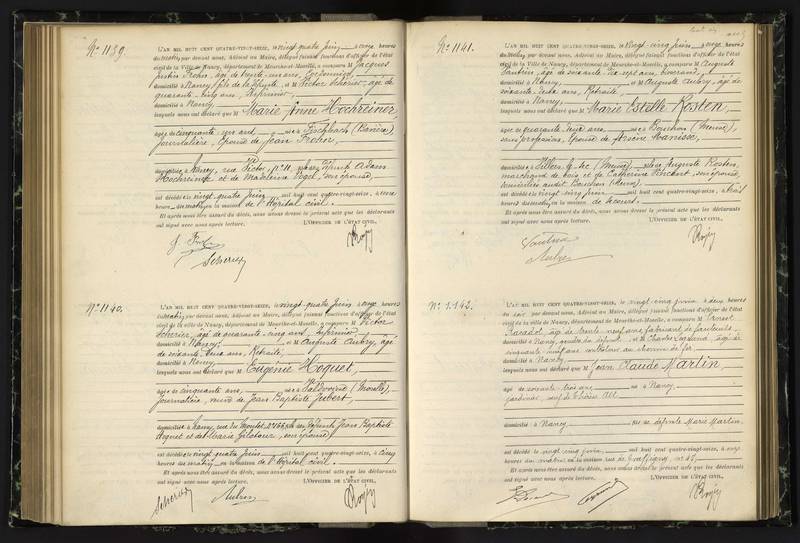 No 1139.
L'AN MIL HUIT CENT QUATRE-VINGT-SEIZE, le vingt quatre Juin à onze heures
du Matin, par devant nous, Adjoint au Maire, délégué faisant fonctions d'officier de l'état
civil de la Ville de Nancy, département de Meurthe-et-Moselle, a comparu M Jacques
Justin Frohn, âgé de trente un ans, Cordonnier,
domicilié à Nancy, fils de la défunte et M Victor Scherier, âgé de
quarante cinq ans, infirmier,
domicilié à Nancy,
lesquels nous ont déclaré que M Marie Anne Hochreiner,
âgée de cinquante un ans, née à Fischbach (Bavière),
Journalière, épouse de Jean Frohn,
domiciliée à Nancy, rue Victor, No 11, fille des défunts Adam
Hochreiner et de Madeleine Vogel, son épouse,
est décédée le vingt quatre Juin mil huit cent quatre-vingt-seize, à
heures du matin, en la maison de l'Hôpital civil.
Et après nous être assuré du décès, nous avons dressé le présent acte que les déclarants
ont signé avec nous après lecture. L'OFFICIER DE L'ÉTAT CIVIL,
Scherier
No 1140.
L'AN MIL HUIT CENT QUATRE-VINGT-SEIZE, le vingt-quatre Juin à onze heures
du Matin, par devant nous, Adjoint au Maire, délégué faisant fonctions d'officier de l'état
civil de la ville de Nancy, département de Meurthe-et-Moselle, a comparu M Victor
Scherier, âgé de quarante-cinq ans, infirmier,
domicilié à Nancy, et M Auguste Aubry, âgé
de soixante deux ans, Retraité,
domicilié à Nancy,
lesquels nous ont déclaré que M Eugénie Hoquet,
âgée de cinquante ans, née à (Moselle),
Journalière, veuve de Jean Baptiste Jubert,
domiciliée à Nancy, rue du Montet, No 166, fille des défunts Jean Baptiste
Hoquet et de Marie, son épouse,
est décédée le vingt quatre Juin mil huit cent quatre-vingt-seize, à cinq
heures du matin, en la maison de l'Hôpital civil.
Et après nous être assuré du décès, nous avons dressé le présent acte que les déclarants
ont signé avec nous après lecture. L'OFFICIER DE L'ÉTAT CIVIL,
Scherier Aubry
No 1141.
L'AN MIL HUIT CENT QUATRE-VINGT-SEIZE, le Vingt-cinq Juin à onze heures
du Matin, par devant nous, Adjoint au Maire, délégué faisant fonctions d'officier de l'état
civil de la Ville de Nancy, département de Meurthe-et-Moselle, a comparu M Auguste
Vautrin, âgé de soixante dix sept ans,
domicilié à Nancy, et M Auguste Aubry, âgé de
soixante deux ans, Retraité,
domicilié à Nancy,
lesquels nous ont déclaré que M Marie Estelle Kosten,
âgée de quarante deux ans, née à Bouchon (Meuse),
sans profession, épouse de Arsène Hanisse,
domiciliée à (Meuse), fille de Auguste Kosten,
marchand de bois et de Catherine Vincent, son épouse,
domiciliés audit Bouchon (Meuse),
est décédée le vingt cinq Juin mil huit cent quatre-vingt-seize, à trois
heures du matin, en la maison de secours.
Et après nous être assuré du décès, nous avons dressé le présent acte que les déclarants
ont signé avec nous après lecture. L'OFFICIER DE L'ÉTAT CIVIL,
Vautrin
Aubry
No 1142.
L'AN MIL HUIT CENT QUATRE-VINGT-SEIZE, le vingt cinq juin à deux heures
du soir par devant nous, Adjoint au Maire, délégué faisant fonctions d'officier de l'état
civil de la Ville de Nancy, département de Meurthe-et-Moselle, a comparu M Ernest
âgé de trente neuf ans fabricant de fauteuils,
domicilié à Nancy, gendre du défunt et M Charles, âgé de
cinquante neuf ans contrôleur au chemin de fer
domicilié à Nancy
lesquels nous ont déclaré que M Jean Claude Martin
âgé de soixante trois ans né à Nancy
jardinier, veuf de Thérèse
domicilié à Nancy fils de défunte Marie Martin
est décédé le vingt cinq juin mil huit cent quatre-vingt-seize, à
heures du matin en la maison rue de
Et après nous être assuré du décès, nous avons dressé le présent acte que les déclarants
ont signé avec nous après lecture. L'OFFICIER DE L'ÉTAT CIVIL,